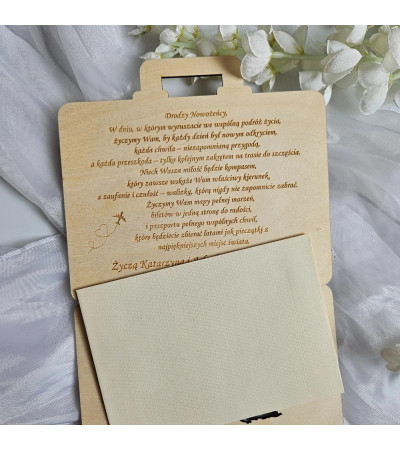 Drodzy Nowożeńcy,
W dniu, w którym wyruszacie we wspólną podróż życia,
życzymy Wam, by każdy dzień był nowym odkryciem,
każda chwila – niezapomnianą przygodą,
a każda przeszkoda – tylko kolejnym zakrętem na trasie do szczęścia.
Niech Wasza miłość będzie kompasem,
który zawsze wskaże Wam właściwy kierunek,
a zaufanie i czułość – walizką, którą nigdy nie zapomnicie zabrać.
Życzymy Wam mapy pełnej marzeń,
biletów w jedną stronę do radości,
i paszportu pełnego wspólnych chwil,
które będziecie zbierać latami jak pieczątki z
najpiękniejszych miejsc świata.
Życzą Katarzyna i